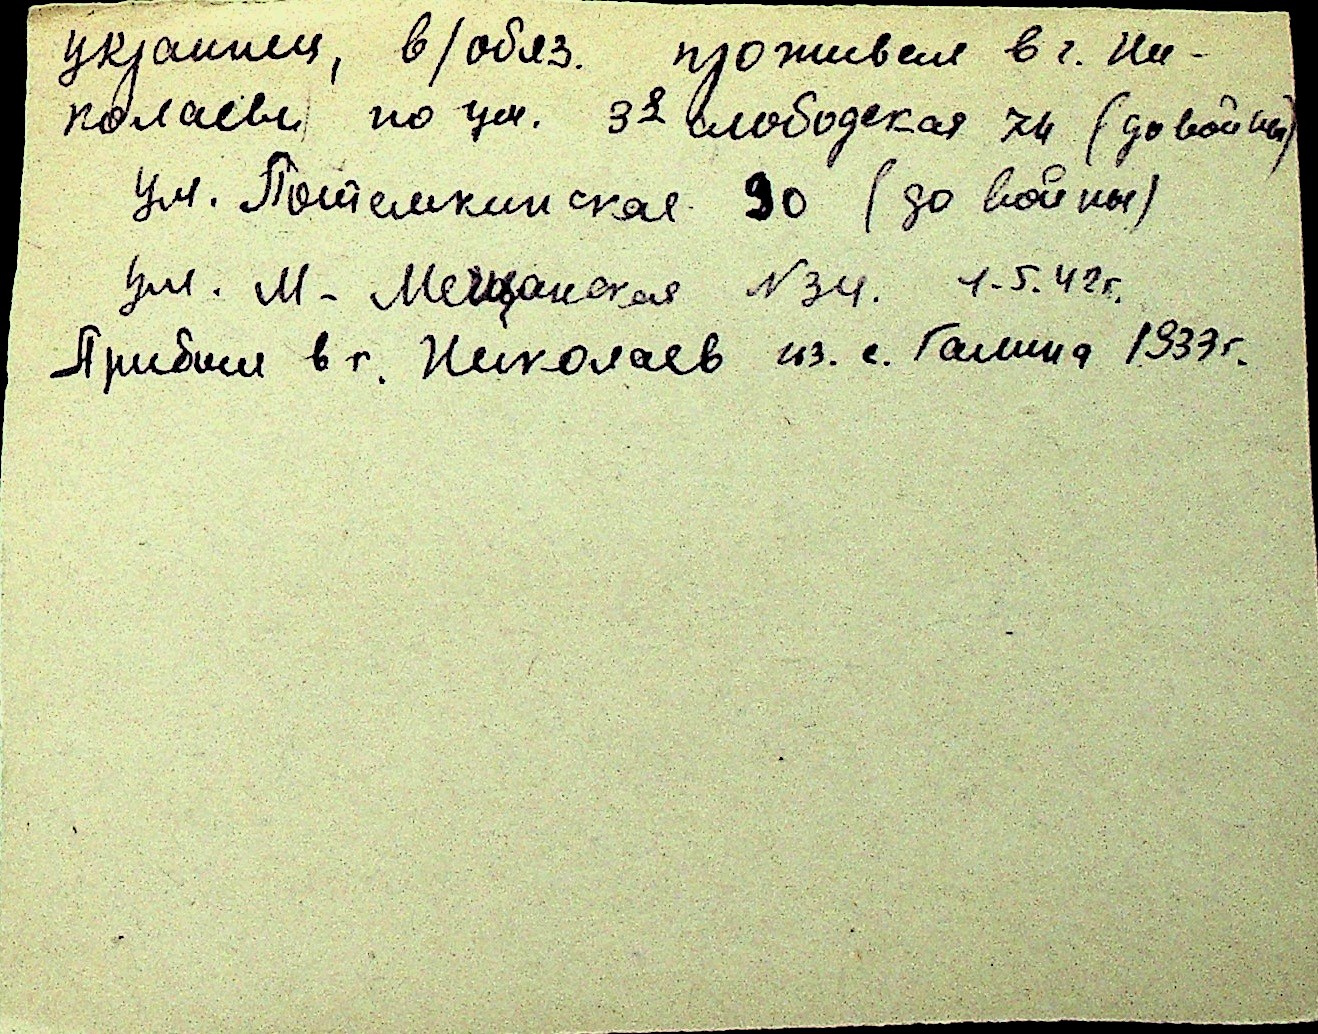 украинец, в/обяз. проживал в г. Ни-
колаеве по ул. 3я слободская 74 (до войны)
ул. Потемкинская 90 (до войны)
ул. М-Мещанская №34. 1.5.42г.
Прибыл в г. Николаев из. с. Галина 1933г.